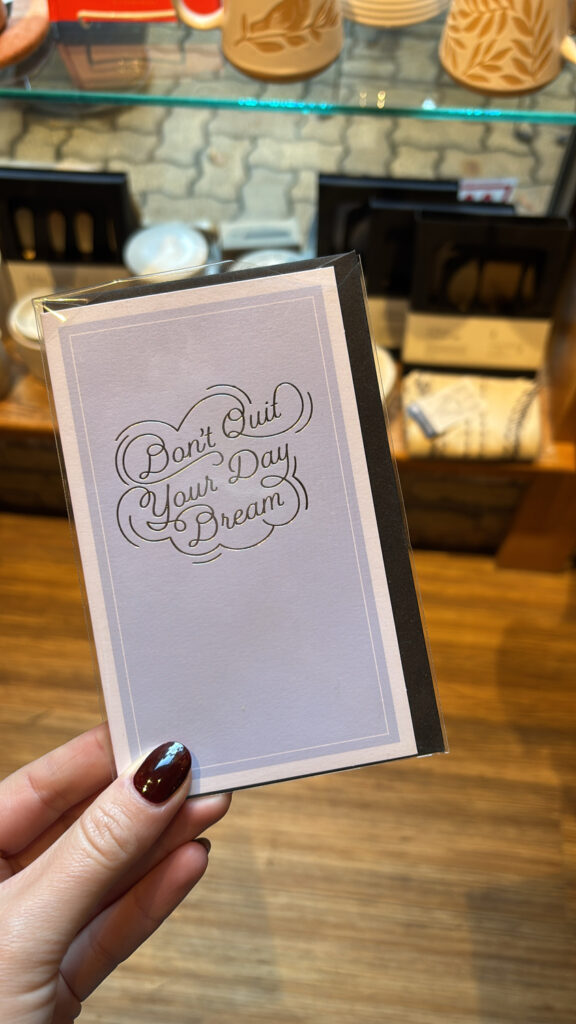 Don't Quit
Your Day
Dream